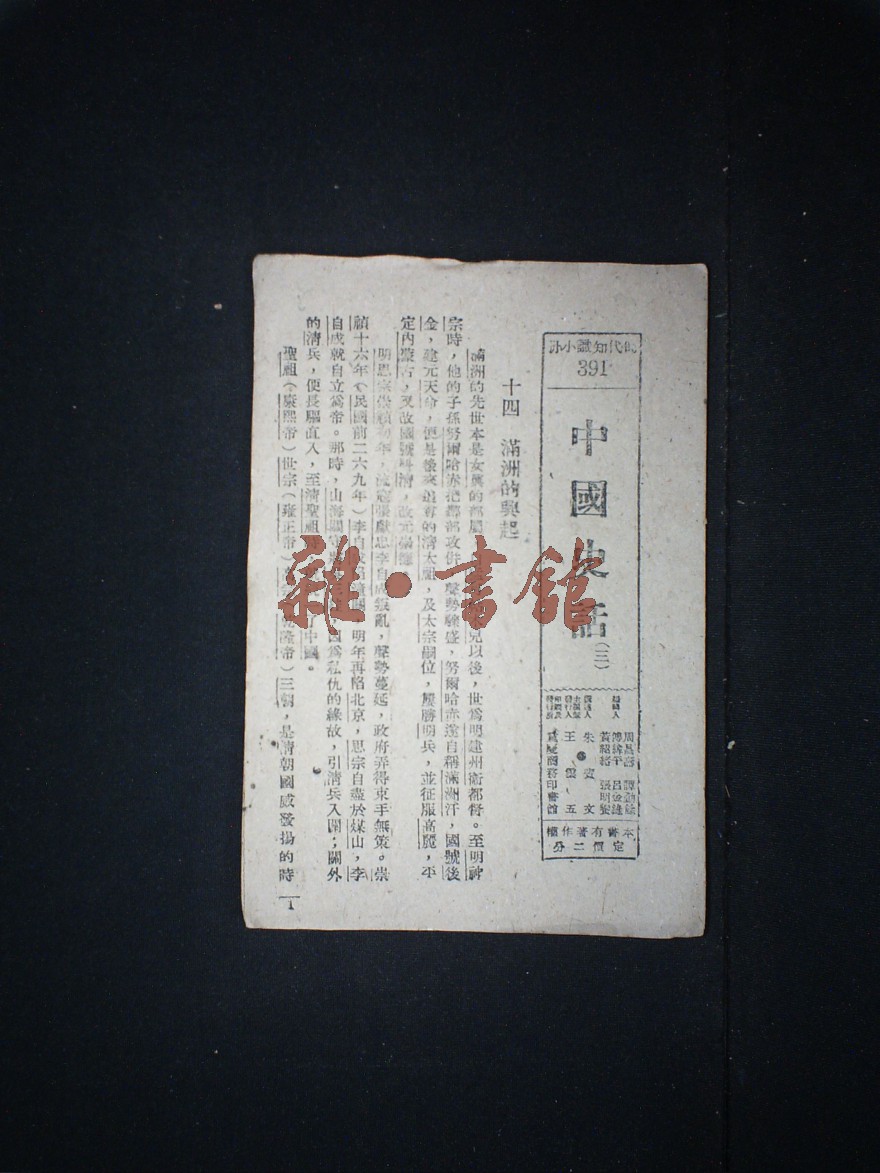 時代知識小冊
391
中國史話(三)
編輯人
周昌壽
傅緯平 呂金錄
黃紹緒 張明養
朱 文
出版兼發行人
王雲五
商務印書館
本書有著作權
定價二分
十四 滿洲的興起
滿洲的先世本是女真的部屬 以後,世爲明建州衛都督。至明神
宗時,他的子孫努爾哈赤把鄰部攻併 聲勢驟盛,努爾哈赤遂自稱滿洲汗,國號後
金,建元天命,便是後來追尊的清太祖,及太宗嗣位,屢勝明兵,並征服高麗,平
定內蒙古,又改國號 清,改元崇德
明思宗崇禎初年,流寇張獻忠李自成叛亂,聲勢蔓延,政府弄得束手無策。崇
禎十六年(民國前二六九年)李自成 明年再陷北京,思宗自盡於煤山,李
自成就自立爲帝。那時,山海關守 因爲私仇的緣故,引清兵入關;關外
的清兵,便長驅直入,至清聖祖 了中國。
聖祖(康熙帝)世宗(雍正帝) 隆帝)三朝,是清朝國威發揚的時
1
雜·書館